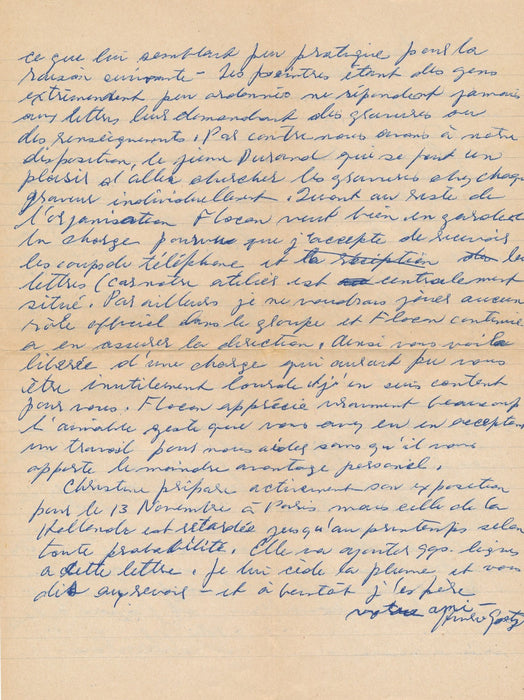 ce que lui semblait peu pratique pour la
raison suivante – Les peintres étant des gens
extrêmement peu ordonnés ne répondent jamais
aux lettres leur demandant des gravures ou
des renseignements. Par contre nous avons à notre
disposition, le jeune Durand qui se fait un
plaisir d'aller chercher les gravures chez chaque
graveur individuellement. Quant au reste de
l'organisation Flocon veut bien en garder
la charge pourvu que j'accepte de recevoir
les coups de téléphone et la réception des les
lettres (car notre atelier est centralement
situé. Par ailleurs je ne voudrais jouer aucun
rôle officiel dans le groupe et Flocon continue
a en assurer la direction. Ainsi vous voilà
libérée d'une charge qui aurait pu vous
être inutilement lourde et j'en suis content
pour vous. Flocon apprécie vraiment beaucoup
l'aimable geste que vous avez eu en acceptant
un travail pour nous aider sans qu'il vous
apporte le moindre avantage personel.
Christine prépare activement son exposition
pour le 13 Novembre à Paris mais celle de la
Hollande est retardée jusqu'au printemps selon
toute probabilité. Elle va ajouter qqs. lignes
a cette lettre. Je lui cède la plume et vous
dit au revoir – et à bientôt j'espère
votre ami –
Goetz